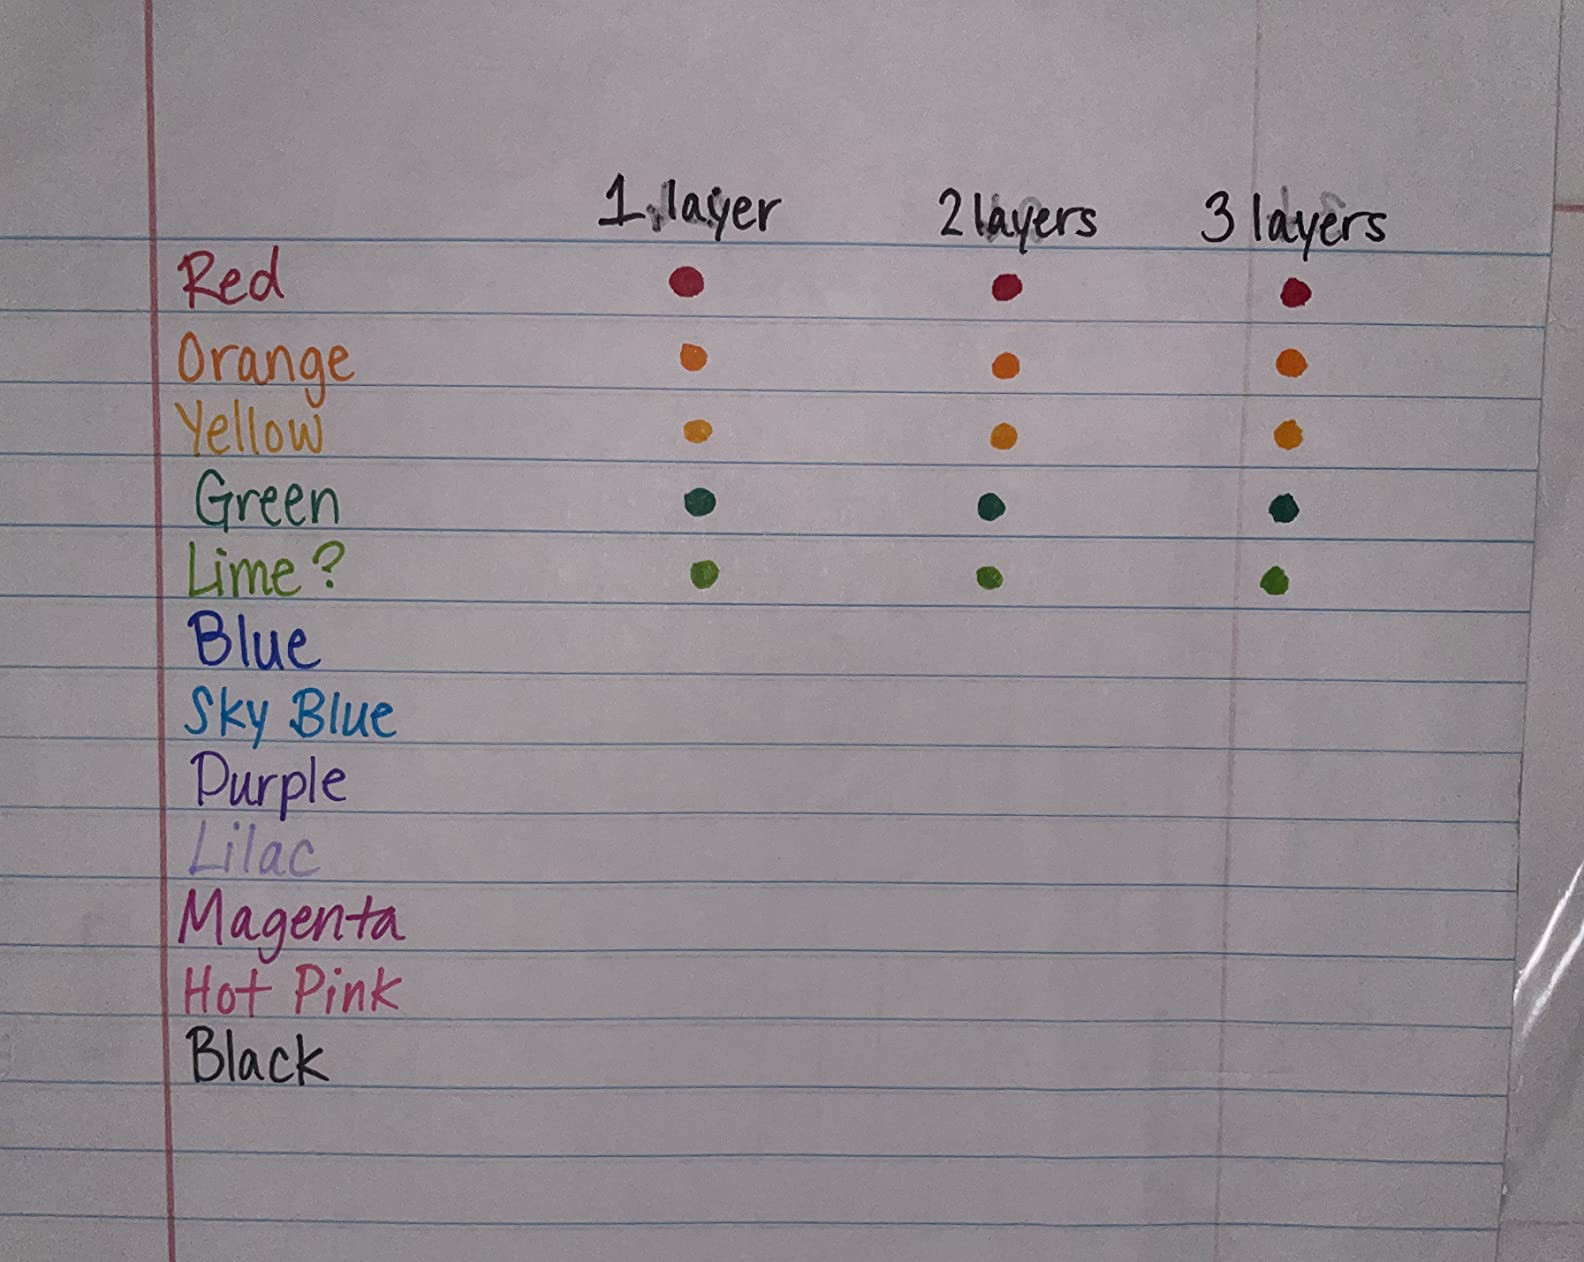 1 layer 2 layers 3 layers
Red
Orange
Yellow
Green
Lime?
Blue
Sky Blue
Purple
Lilac
Magenta
Hot Pink
Black